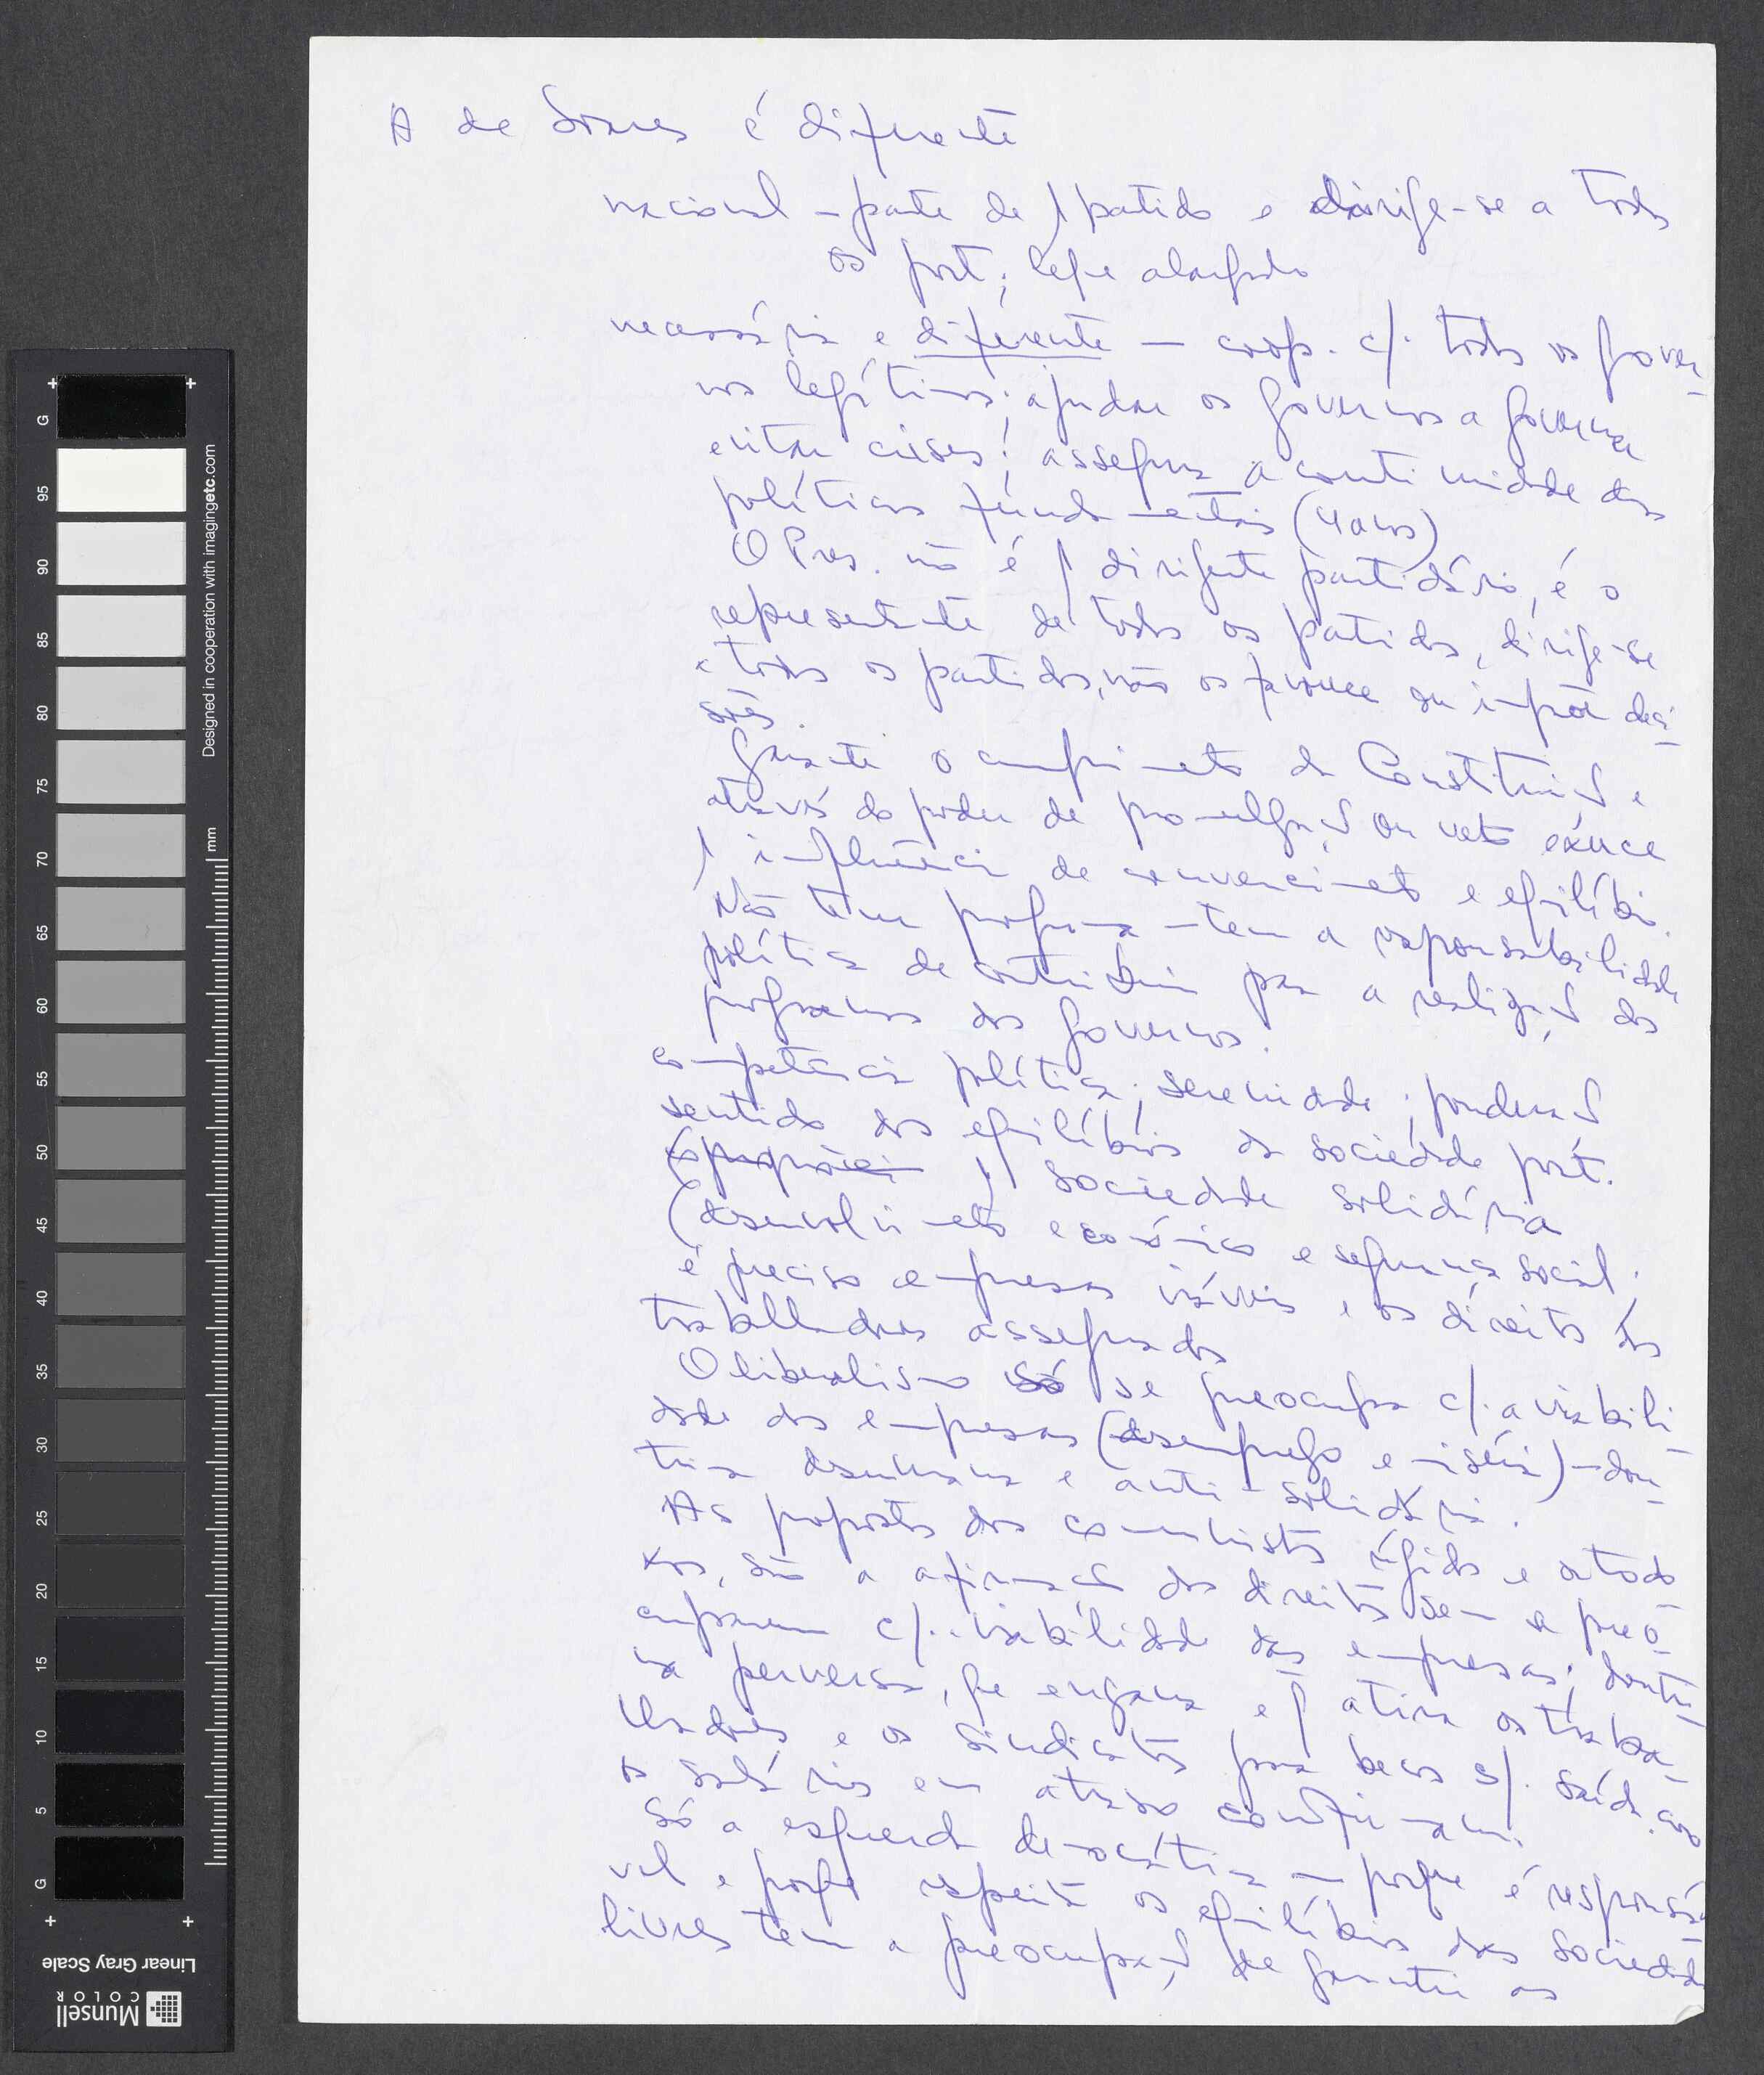 A de Soares é diferente
nacional – parte de 1 partido e dirige-se a todos
os port.; leque alargado
necessária e diferente – coop. c/. todos os gover-
nos legítimos; ajudar os governos a governar
evitar crises; assegura a continuidade das
políticas fundamentais (4 anos)
O Pres. não é 1 dirigente partidário, é o
representante de todos os partidos, dirige-se
a todos os partidos, não os favorece ou impõe deci-
sões.
Garante o cumprimento da Constituição e
através do poder de promulgação ou veto exerce
1 influência de convencimento e equilíbrio.
Não tem programa – tem a responsabilidade
política de contribuir para a realização dos
programas dos governos.
competência política; serenidade; ponderação
sentido dos equilíbrios da sociedade port.
1 sociedade solidária
(desenvolvimento económico e segurança social;
é preciso empresas viáveis e os direitos dos
trabalhadores assegurados
O liberalismo só se preocupa c/. a viabili-
dade das empresas (desemprego e miséria) – dou-
trina desumana e anti-solidária.
As propostas dos comunistas rígidos e ortodo-
xos, são a afirmação dos direitos sem se preo-
cuparem c/. viabilidade das empresas; doutri-
na perversa, que engana e atira os traba-
lhadores e os sindicatos para becos s/. saída como
os salários em atraso confirmam.
Só a esquerda democrática – porque é responsá-
vel e porque respeita os equilíbrios das sociedades
livres tem a preocupação de garantir os
Designed in cooperation with imagingetc.com
mm
G 95 90 85 80 75 70 65 60 55 50 45 40 35 30 25 20 15 10 5 G
Linear Gray Scale
Munsell
COLOR